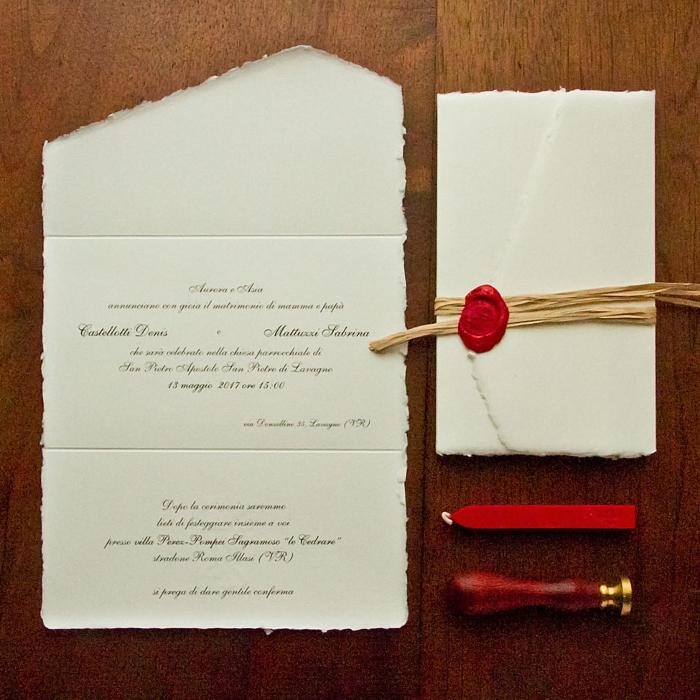 Aurora e Asia
annunciano con gioia il matrimonio di mamma e papà
Castellotti Denis e Mattuzzi Sabrina
che sarà celebrato nella chiesa parrocchiale di
San Pietro Apostolo San Pietro di Lavagno
13 maggio 2017 ore 15:00
via Donzelline 35, Lavagno (VR)
Dopo la cerimonia saremmo
lieti di festeggiare insieme a voi
presso villa Perez-Pompei Sagramoso "le Cedrare"
stradone Roma Illasi (VR)
si prega di dare gentile conferma